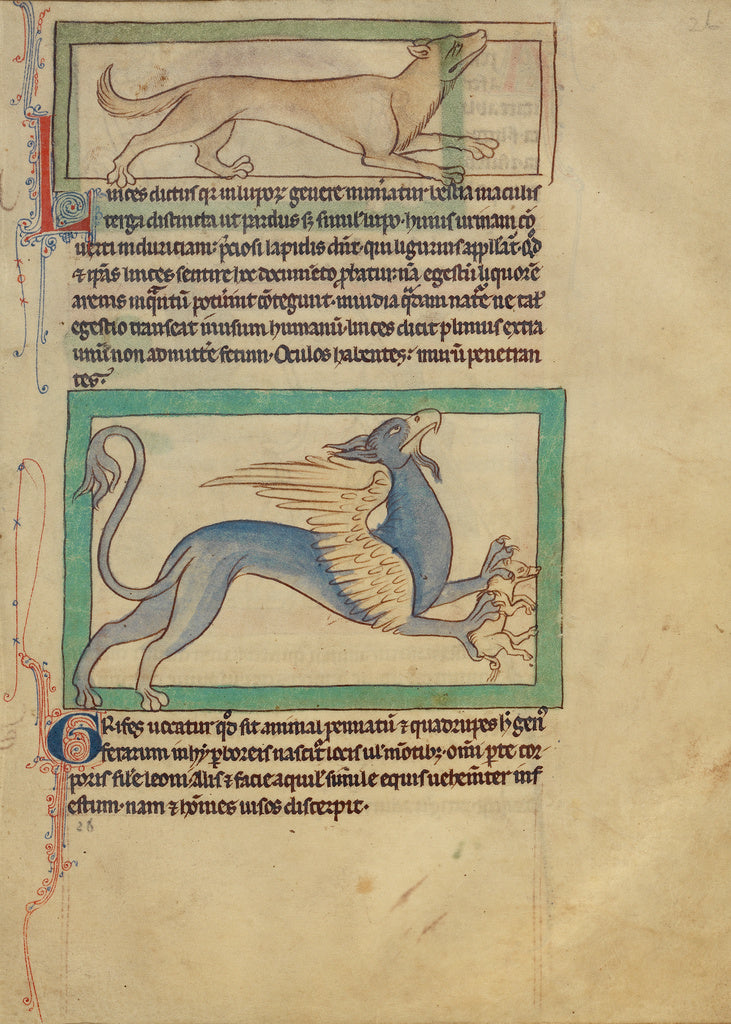 26
Linces dictus qr in lupoꝝ genere num̄atur bestia maculis
terga distincta ut pardus ſꝫ simil' lupo. huius urinam cō
uerti in duriciam p̄ciosi lapidis dn̄t. qui ligurius appllat'. Qd
⁊ ip̄as linces sentire hoc documēto ꝓbatur. nā egestū liquorē
arenis inq̄ntū potūint cōtegunt. inuidia q̄dam nat'e ne tal'
egestio transeat in usum humanū. linces dicit plinius extra
unū non admitt'e fetum. Oculos habentes: murū penetran
tes.
GRifes uocatur qd̓ sit animal pennatū ⁊ quadrupes h̓ gen'
ferarum in hyꝑboreis nascit' locis ul' mōtibꝫ. om̄i ꝑte cor
poris sil'e leoni. Alis ⁊ facie aquil' simile equis uehem̄ter inf
estum. nam ⁊ hoīnes uisos discerpit.
26